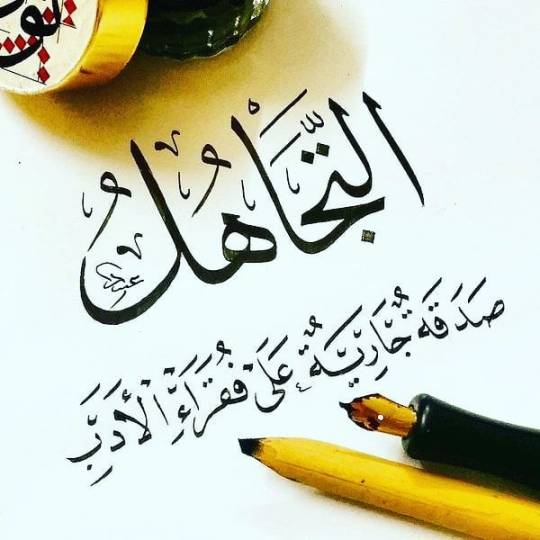 التَّجَاهُلُ
صَدَقَه جَّارِيَةُ عَلَىٰ فُقَرَاءِ الْأَدَبِ